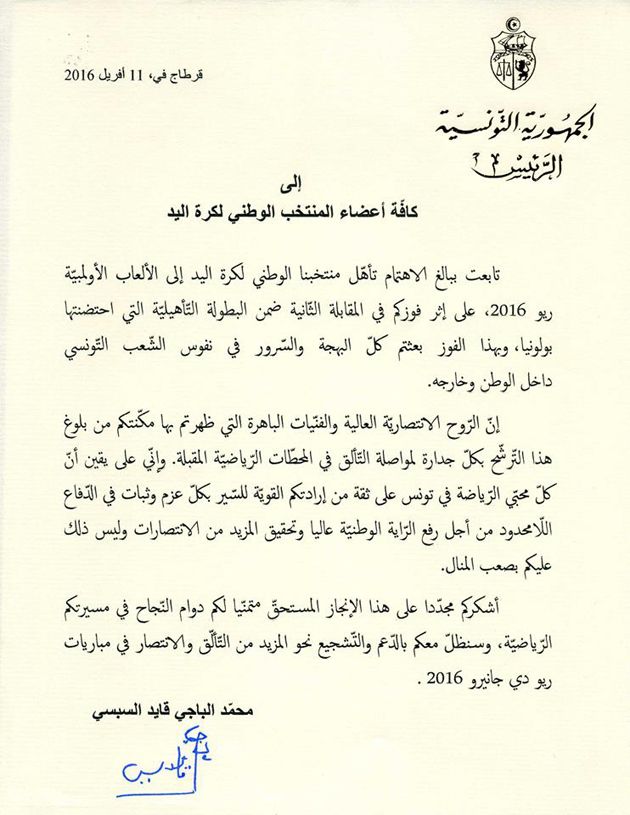 الجمهوريّة التّونسيّة
الرّئيس
قرطاج في، 11 أفريل 2016
إلى
كافّة أعضاء المنتخب الوطني لكرة اليد
تابعت ببالغ الاهتمام تأهّل منتخبنا الوطني لكرة اليد إلى الألعاب الأولمبيّة
ريو 2016، على إثر فوزكم في المقابلة الثّانية ضمن البطولة التّأهيليّة التي احتضنتها
بولونيا، وبهذا الفوز بعثتم كلّ البهجة والسّرور في نفوس الشّعب التّونسي
داخل الوطن وخارجه.
إنّ الرّوح الانتصاريّة العالية والفنّيات الباهرة التي ظهرتم بها مكّنتكم من بلوغ
هذا التّرشّح بكلّ جدارة لمواصلة التّألّق في المحطّات الرّياضيّة المقبلة. وإنّي على يقين أنّ
كلّ محبّي الرّياضة في تونس على ثقة من إرادتكم القويّة للسّير بكلّ عزم وثبات في الدّفاع
اللّامحدود من أجل رفع الرّاية الوطنيّة عاليا وتحقيق المزيد من الانتصارات وليس ذلك
عليكم بصعب المنال.
أشكركم مجدّدا على هذا الإنجاز المستحقّ متمنّيا لكم دوام النّجاح في مسيرتكم
الرّياضيّة، وسنظلّ معكم بالدّعم والتّشجيع نحو المزيد من التّألّق والانتصار في مباريات
ريو دي جانيرو 2016 .
محمّد الباجي قايد السبسي